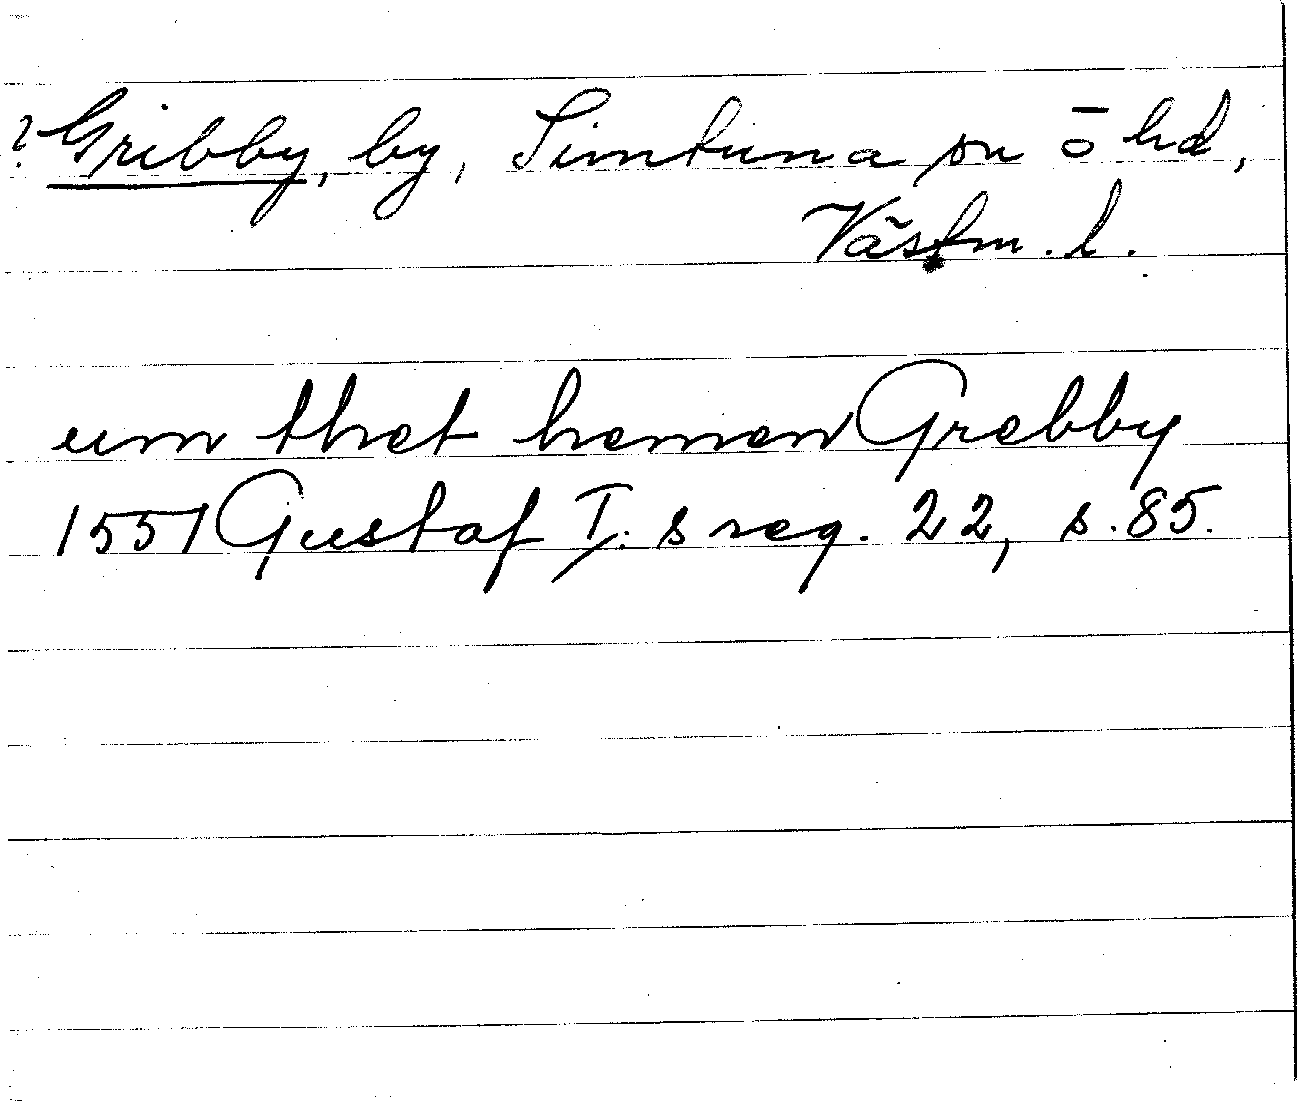 ? Gribby, by, Simtuna sn o hd,
Västm. l.
um thet hemen Grebby
1551 Gustaf I:s reg. 22, s. 85.